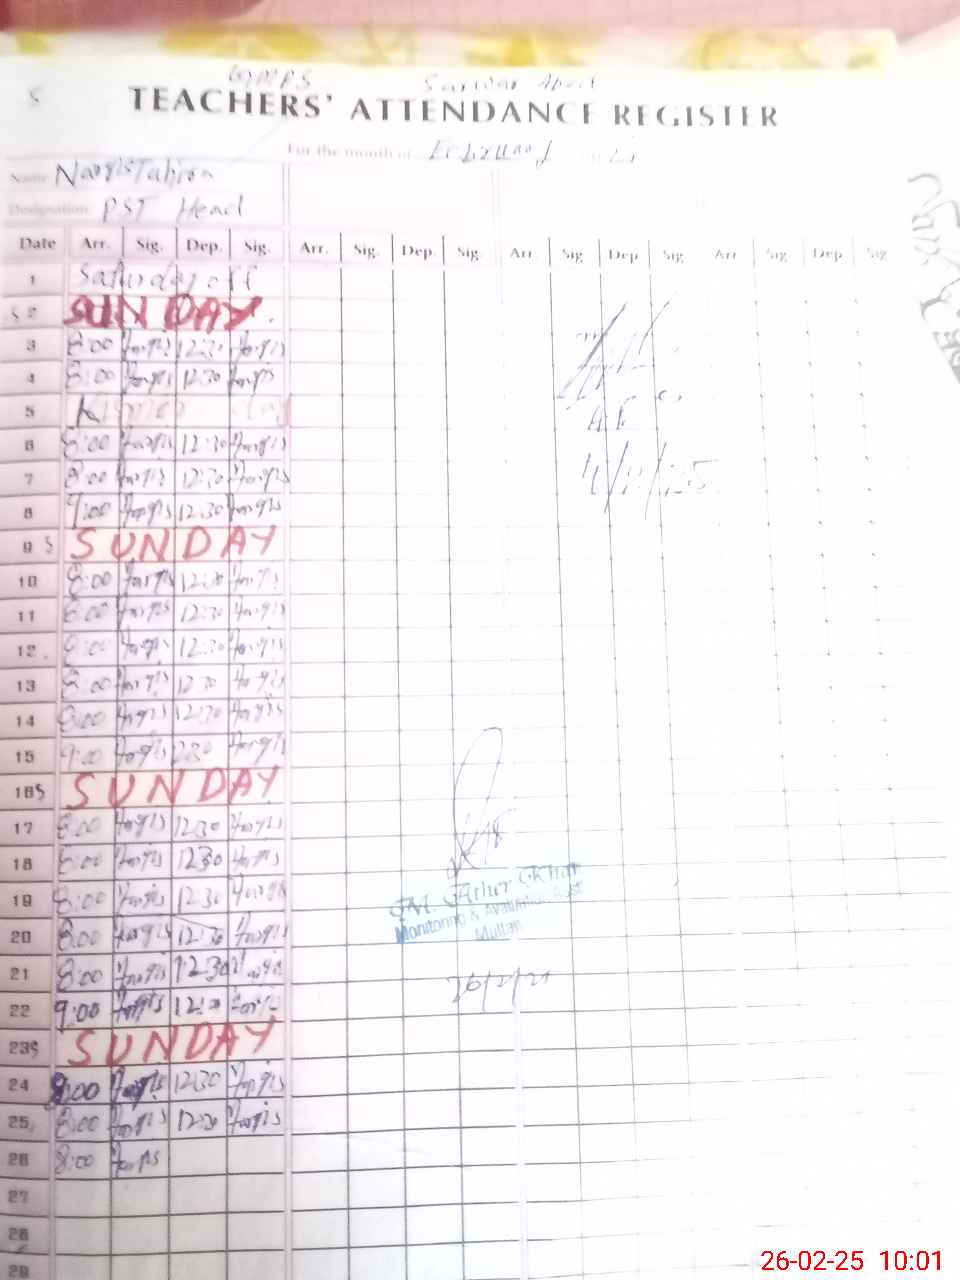 GMPS
TEACHERS' ATTENDANCE REGISTER
For the month of
Name Nargis Tahira
Designation PST Head
Date Arr. Sig. Dep. Sig. Arr. Sig. Dep. Sig. Arr. Sig. Dep. Sig. Arr. Sig. Dep. Sig.
1 Saturday off
2 SUNDAY
3 8:00 Nargis 12:30 Nargis
4 8:00 Nargis 12:30 Nargis
5 day
6 8:00 Nargis 12:30 Nargis
7 8:00 Nargis 12:30 Nargis
8 9:00 Nargis 12:30 Nargis
9 SUNDAY
10 8:00 Nargis 12:30 Nargis
11 8:00 Nargis 12:30 Nargis
12 8:00 Nargis 12:30 Nargis
13 8:00 Nargis 12:30 Nargis
14 8:00 Nargis 12:30 Nargis
15 9:00 Nargis 12:30 Nargis
16 SUNDAY
17 8:00 Nargis 12:30 Nargis
18 8:00 Nargis 12:30 Nargis
19 8:00 Nargis 12:30 Nargis
Monitoring &
20 8:00 Nargis 12:30 Nargis
Multan
21 8:00 Nargis 12:30 Nargis
22 9:00 Nargis 12:30 Nargis
23 SUNDAY
24 8:00 Nargis 12:30 Nargis
25 8:00 Nargis 12:30 Nargis
26 8:00 Nargis
27
28
29
26-02-25 10:01